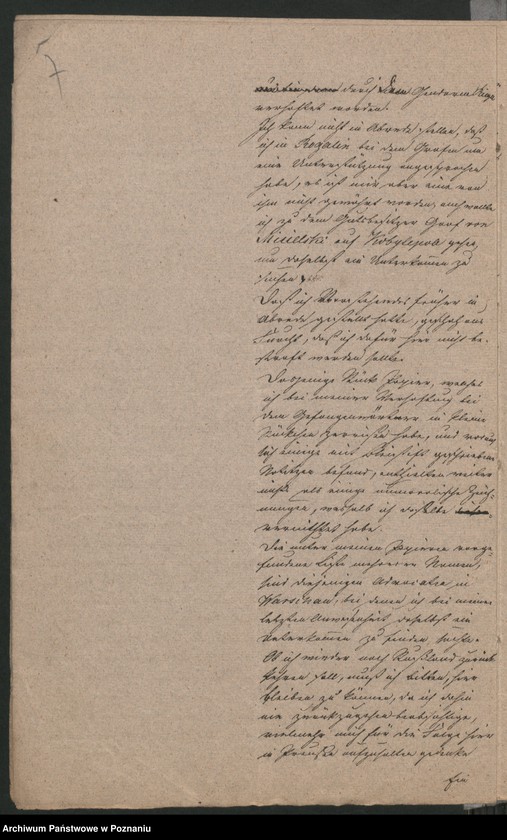 7
durch den Gendarm
verhaftet worden.
Ich kann nicht in Abrede stellen, daß
ich in Rogalin bei dem Grafen um
eine Unterstützung angesprochen
habe, es ist mir aber eine von
ihm nicht gewährt worden, auch wollte
ich zu dem Gutsbesitzer Graf von
Micielski auf Kobylepole gehen
um daselbst ein Unterkommen zu
suchen
Daß ich Vorstehendes früher in
Abrede gestellt habe, geschah aus
Furcht, daß ich dafür hier nicht be-
straft werden sollte.
Dasjenige Stück Papier, welches
ich bei meiner Verhaftung bei
dem Gefangenwärter in kleine
Stückchen zerrissen habe, und worauf
sich einige mit Bleistift geschriebene
Notizen befand, enthielten weiter
nichts als einige unmoralische Zeich-
nungen, weshalb ich dasselbe
vernichtet habe.
Die unter meinen Papieren vorge-
fundene Liste mehrerer Namen,
sind diejenigen Advocaten in
Warschau, bei denen ich bei meiner
letzten Anwesenheit daselbst ein
Unterkommen zu finden suchte.
Ob ich wieder nach Rußland zurück
kehren soll, muß ich bitten, hier
bleiben zu können, da ich dahin
nie zurückzugehen beabsichtige,
vielmehr mich für die Folge hier
in Preußen aufzuhalten gedenke
Ein
Archiwum Państwowe w Poznaniu